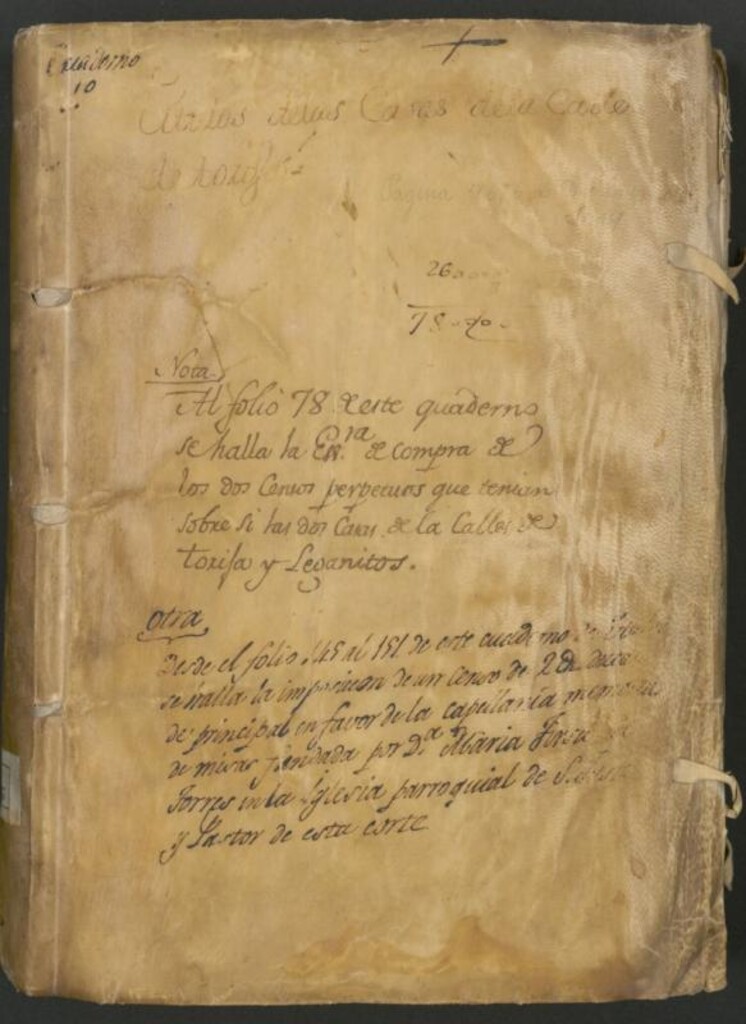 Quaderno
10
Titulos delas Casas dela Calle
de torija
Pagina
26
78
Nota
Al folio 78 de este quaderno
se halla la Essra de compra de
los dos Censos perpetuos que tenian
sobre si las dos Casas de la Calles de
torija y Leganitos.
otra
Desde el folio 145 al 151 de este cuaderno
se halla la imposicion de un Censo de 2
de principal en favor de la capellania
de misas fundada por Da Maria
Torres en la Iglesia parroquial de
y Pastor de esta corte